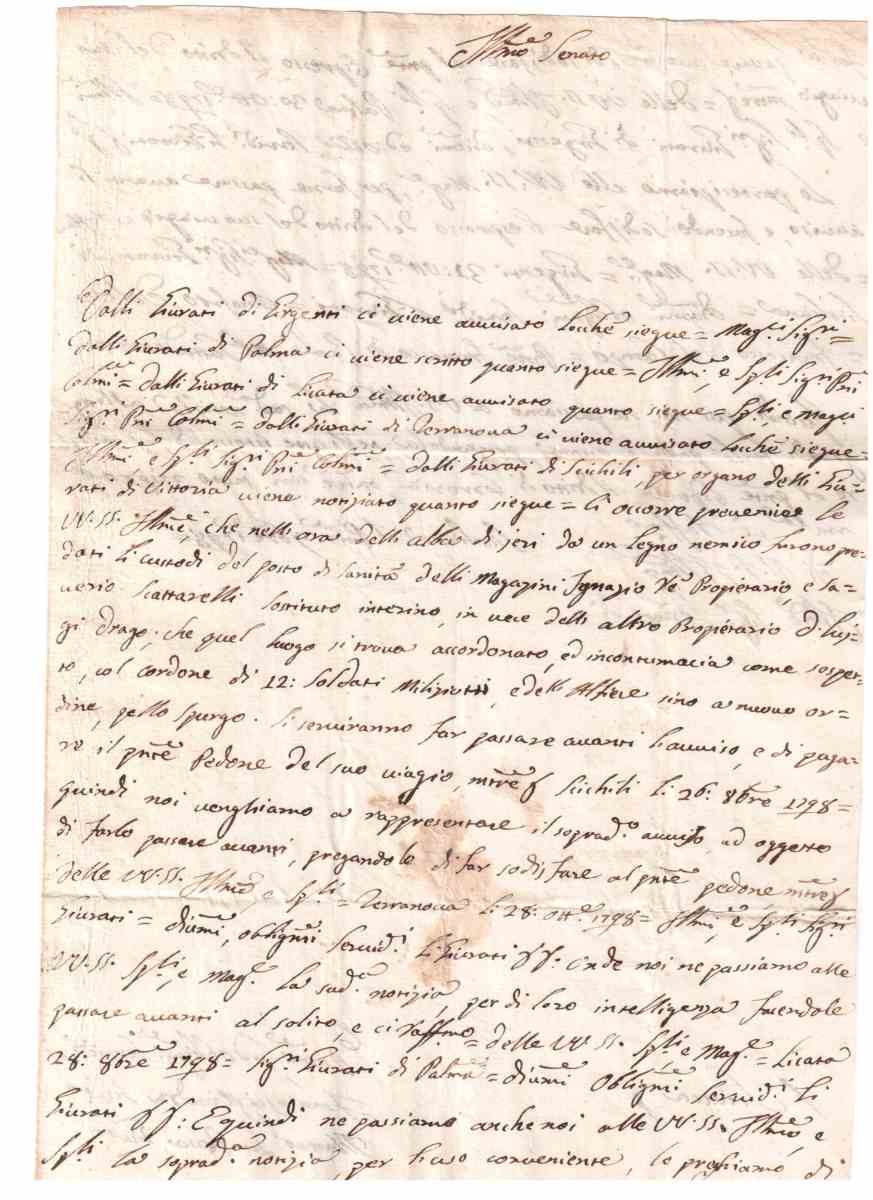 Ill.mo Senato
Dalli Giurati di Girgenti ci viene avvisato locchè siegue = Mag.ci Sig.ri =
dalli Giurati di Palma ci viene scritto quanto siegue = Ill.mi, e Sp.li Sig.ri P.ni
Col.mi = dalli Giurati di Licata ci viene avvisato quanto siegue = Sp.li, e Mag.ci
Sig.ri P.ni Col.mi = dalli Giurati di Terranova ci viene avvisato locchè siegue =
Ill.mi, e Sp.li Sig.ri P.ni Col.mi = dalli Giurati di Scichili, per organo delli Giu=
rati di Vittoria viene notiziato quanto siegue = Ci occorre prevenire le
VV. SS. Ill.me, che nell'ora dell'alba di jeri da un legno nemico furono pre=
dati li custodi del posto di sanità delli Magazini Ignazio Propietario, e Sa=
verio Scattarelli sostituto interino, in vece dell'altro Propietario D. Lui=
gi Drago; che quel luogo si trova accordonato, ed in contumacia come sospet=
to, col cordone di 12: Soldati Miliziotti, e dell'Alfiere sino a nuovo or=
dine, pello spurgo. Si serviranno far passare avanti l'avviso, e di paga=
re il p.nte Pedone del suo viagio, m.tre Scichili li 26: 8bre 1798 =
quindi noi venghiamo a rappresentare il soprad.o avviso, ad oggetto
di farlo passare avanti, pregandole di far sodisfare al p.nte pedone, m.tre
delle VV. SS. Ill.me, e Sp.li = Terranova li 28: ott.e 1798 = Ill.mi, e Sp.li Sig.ri
Giurati = div.mi, oblig.mi Servid.i Li Giurati Onde noi ne passiamo alle
VV. SS. Sp.li, e Mag.e la sud.a notizia, per di loro intelligenza facendole
passare avanti al solito, e ci = delle VV. SS. Sp.li e Mag.e = Licata
28: 8bre 1798 = Sig.ri Giurati di Palma = div.mi Oblig.mi Servid.i Li
Giurati E quindi ne passiamo anche noi alle VV. SS. Ill.me, e
Sp.li la soprad.a notizia, per l'uso conveniente, le preghiamo di